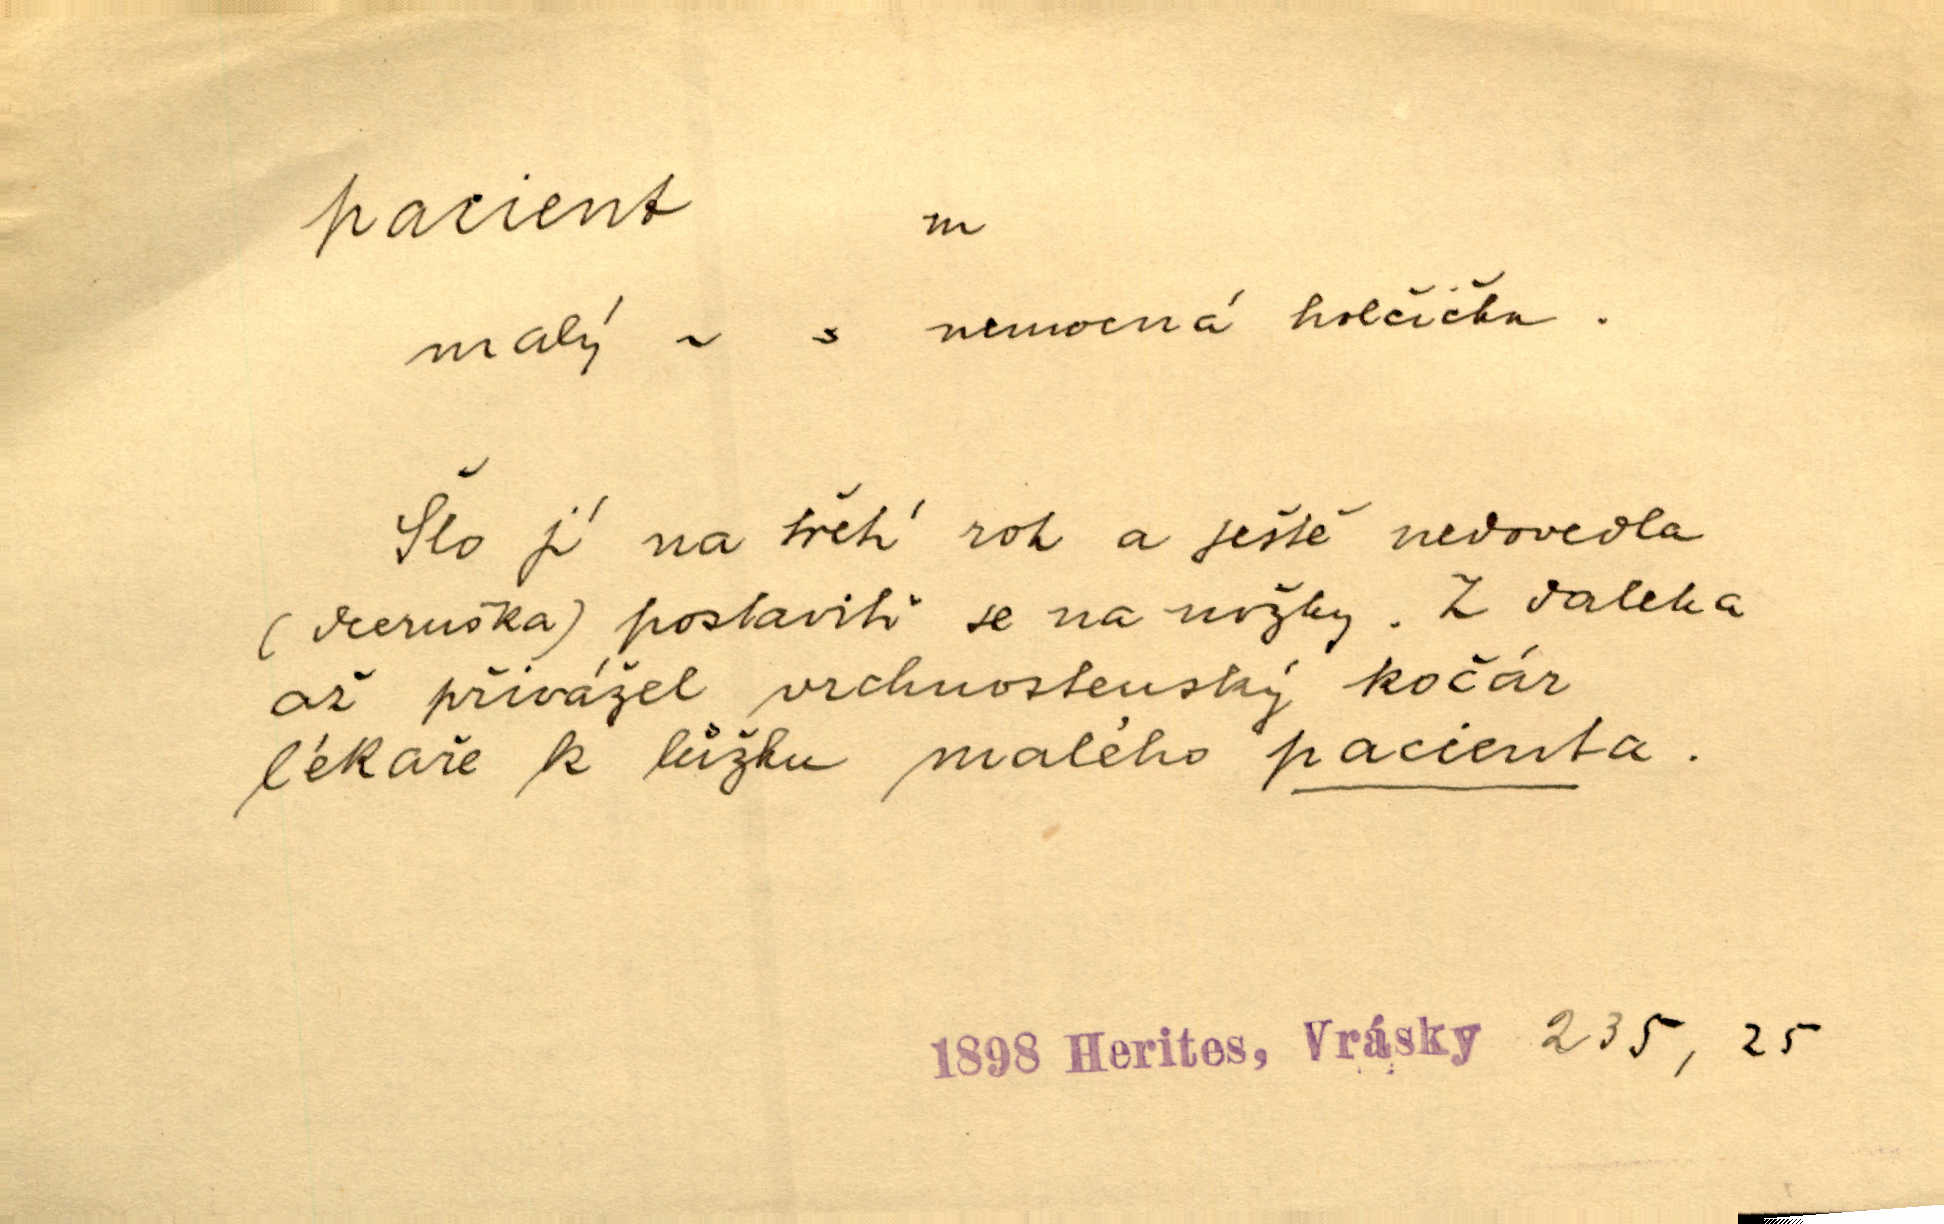 pacient m
malý ~ s nemocná holčička.
Šlo jí na třetí rok a ještě nedovedla
(dceruška) postaviti se na nožky. Z daleka
až přivážel vrchnostenský kočár
lékaře k lůžku malého pacienta.
1898 Herites, Vrásky 235, 25